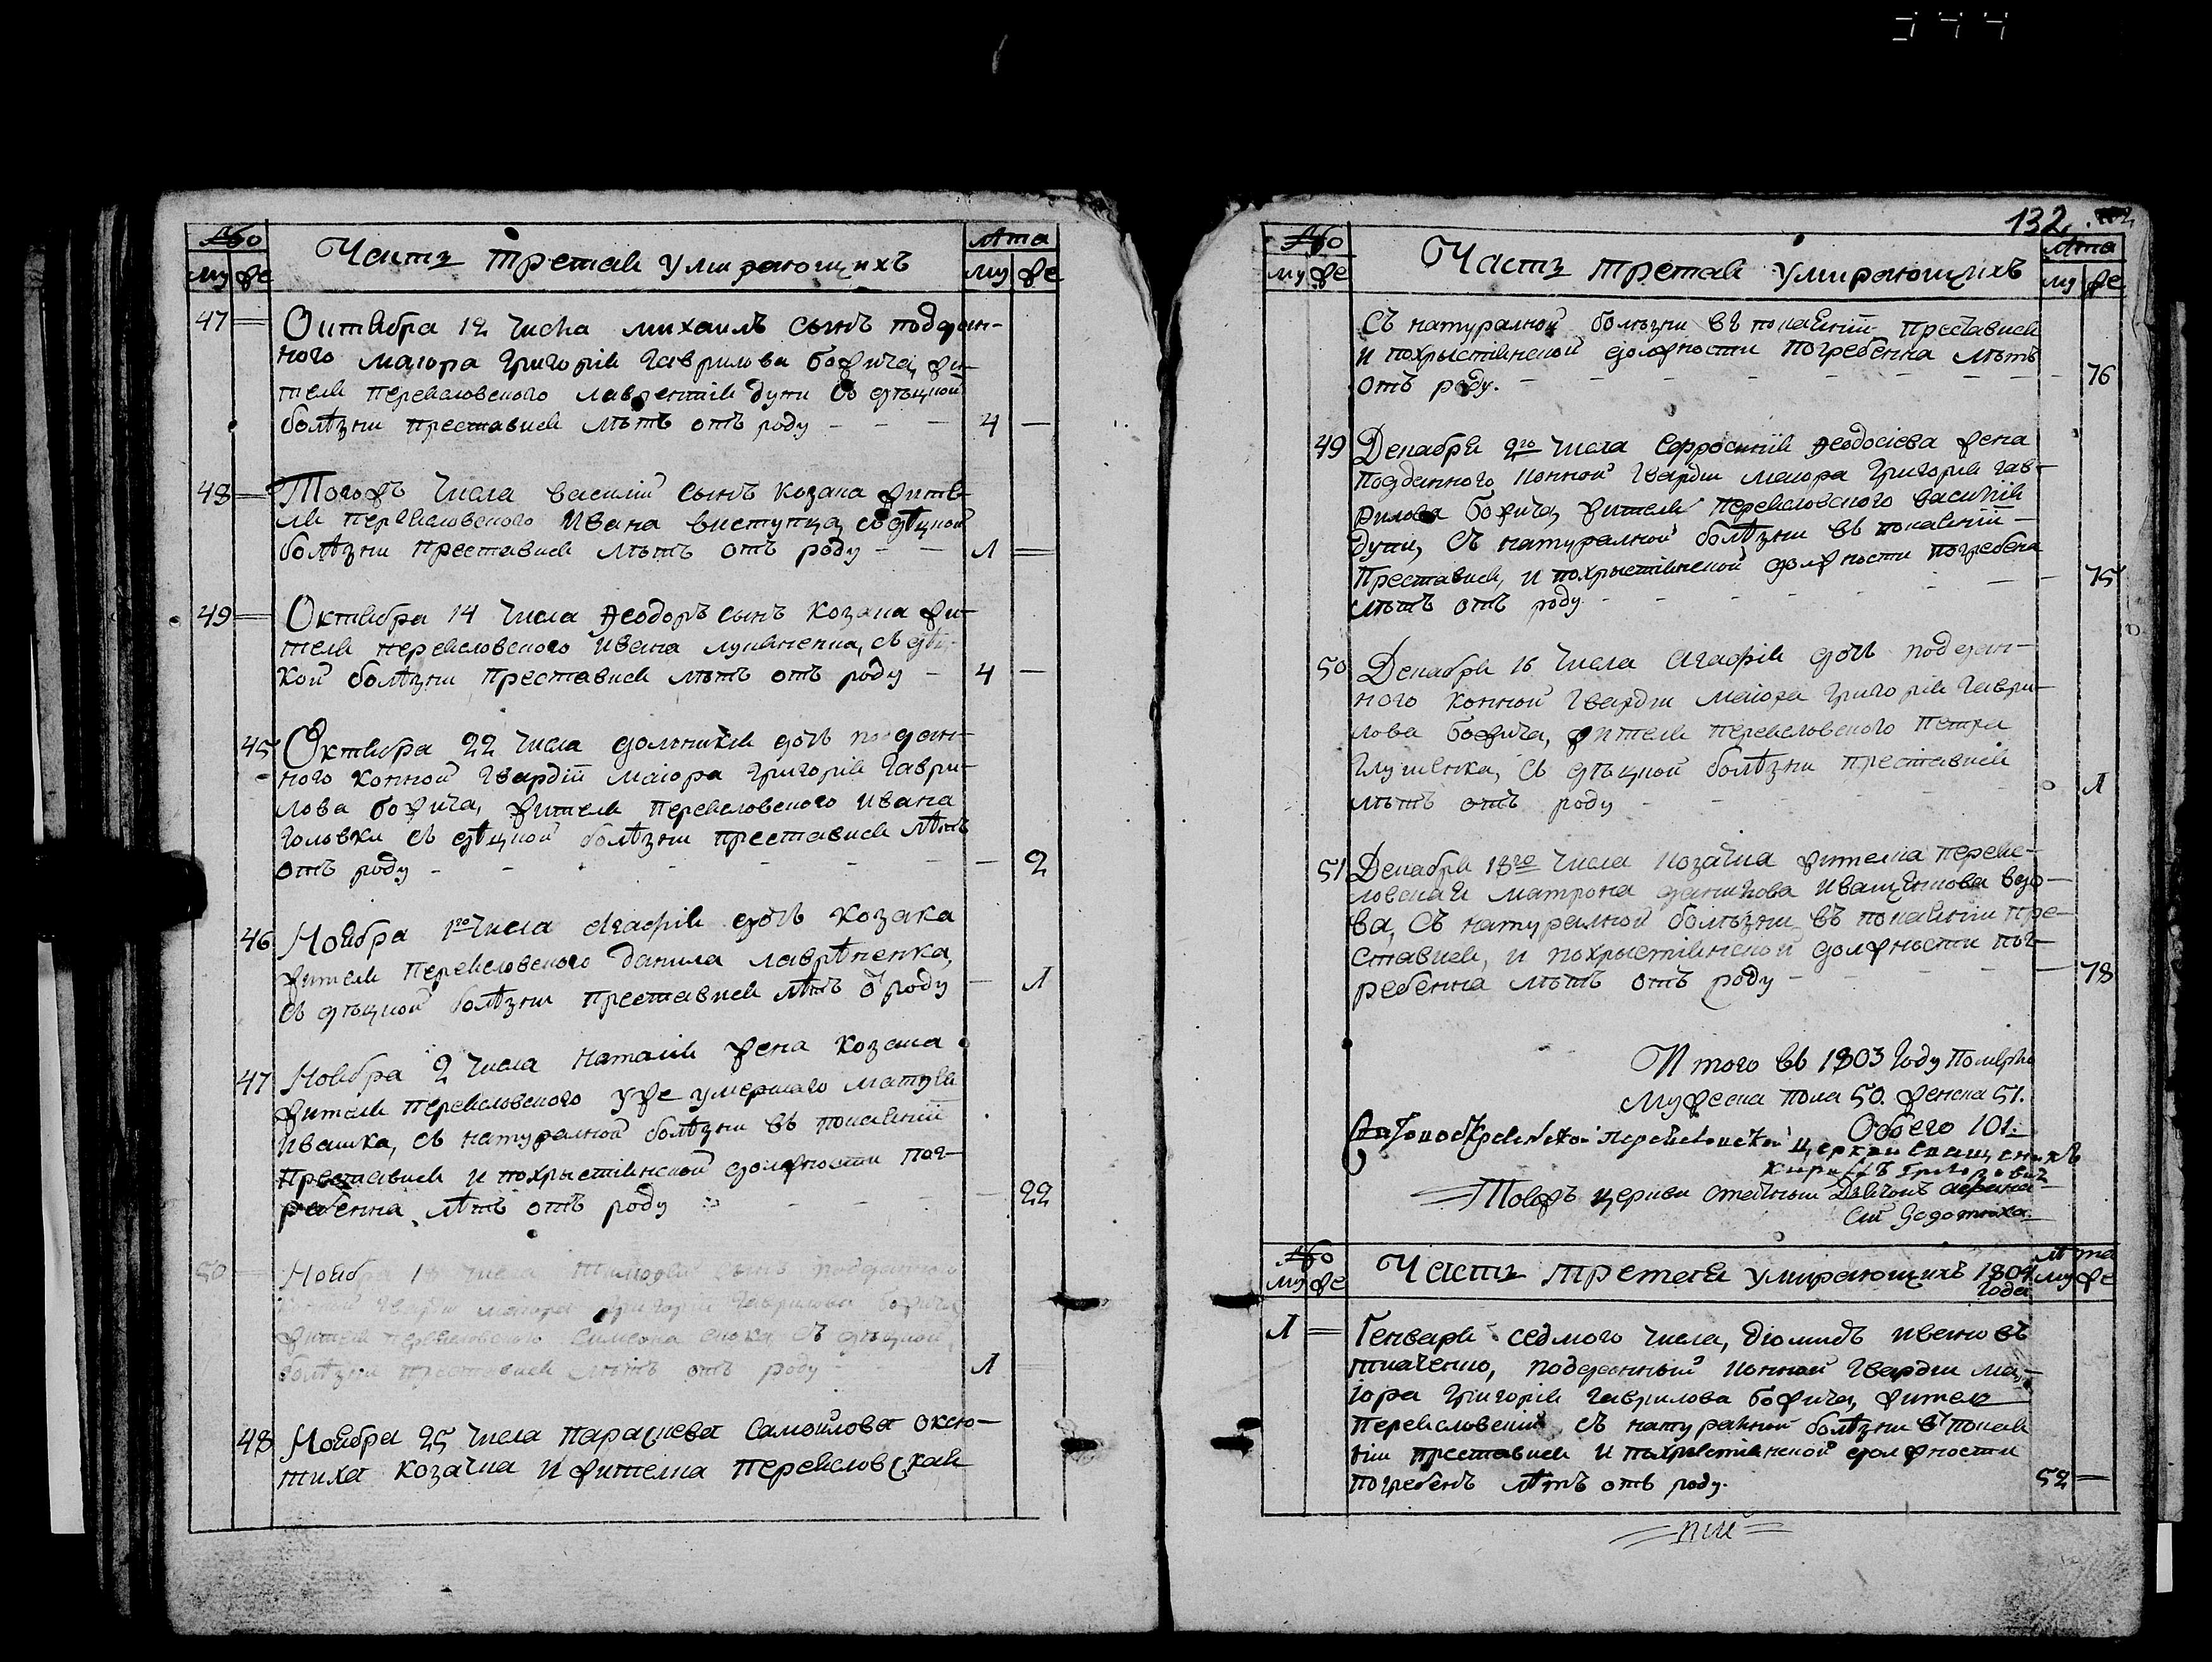 Часть третая умирающихъ
лѣта
му же
му же
47 Октября 12 числа михаилъ сынъ поддан-
ного маіора григорія гаврилова божича, жи-
теля переясловского лаврентія дуги съ дѣцкой
болѣзни преставися лѣтъ отъ роду 4
48 Тогожъ числа василій сынъ козака жите-
ля переясловского ивана виступца, съ дѣцкой
болѣзни преставися лѣтъ отъ роду 1
49 Октября 14 числа Ѳеодоръ сынъ козака жи-
теля переясловского ивана лукяненка, съ дѣц-
кой болѣзни преставися лѣтъ отъ роду 4
45 Октября 22 числа доликія дочь поддан-
ного конной гвардіи маіора григорія гаври-
лова божича, жителя переясловского ивана
головки съ дѣцкой болѣзни преставися лѣтъ
отъ роду 2
46 Ноября 1го числа агафія дочь козака
жителя переясловского данила лаврѣненка,
съ дѣцкой болѣзни преставися лѣтъ ѿ роду 1
47 Ноября 2 числа наталія жена козака
жителя переясловского уже умершаго матвѣя
ивашка, съ натуралной болѣзни въ покаяніи
преставися и похрыстіянской должности пог-
ребенна лѣтъ отъ роду 22
50 Ноября 18 числа тимоѳей сынъ подданного
конной гвардіи маіора григорія гаврилова божича
жителя переясловского симеона съ дѣцкой
болѣзни преставися лѣтъ отъ роду 1
48 Ноября 25 числа параскева самойлова оксю-
тиха козачка и жителка переясловская
132
Часть третая умирающихъ
лѣта
му же
му же
съ натуралной болѣзни въ покаяніи преставися
и похрыстіянской должности погребенна лѣтъ
отъ роду. 76
49 Декабря 9го числа Ефросинія Ѳеодосіева жена
подданного конной гвардіи маіора григорія гав-
рилова божича, жителя переясловского василія
дуги, съ натуралной болѣзни въ покаяніи
преставися, и похрыстіянской должности погребена
лѣтъ отъ роду 75
50 Декабря 16 числа агафія дочь поддан-
ного конной гвардіи маіора григорія гаври-
лова божича, жителя переясловского петра
глущенка, съ дѣцкой болѣзни преставися
лѣтъ отъ роду 1
51 Декабря 18го числа козачка жителка перея-
словская матрона данилова иващенкова вдо-
ва, съ натуралной болѣзни въ покаяніи пре-
ставися, и похрыстіянской должности пог-
ребенна лѣтъ отъ роду 78
Итого въ 1803 году померло
мужеска пола 50. женска 51.
Обоего 101.
церкви священникъ
Кирилъ Григоровичъ
Тояжъ церкви
му же
Часть третея умирающихъ 1804
года
лѣта
му же
1 Генваря седмого числа, діомидъ ивановъ
ткаченко, подданный конной гвардіи ма-
іора григорія гаврилова божича, житель
переясловскій съ натуралной болѣзни въ покая-
ніи преставися и похрыстіянской должности
погребенъ лѣтъ отъ роду. 52